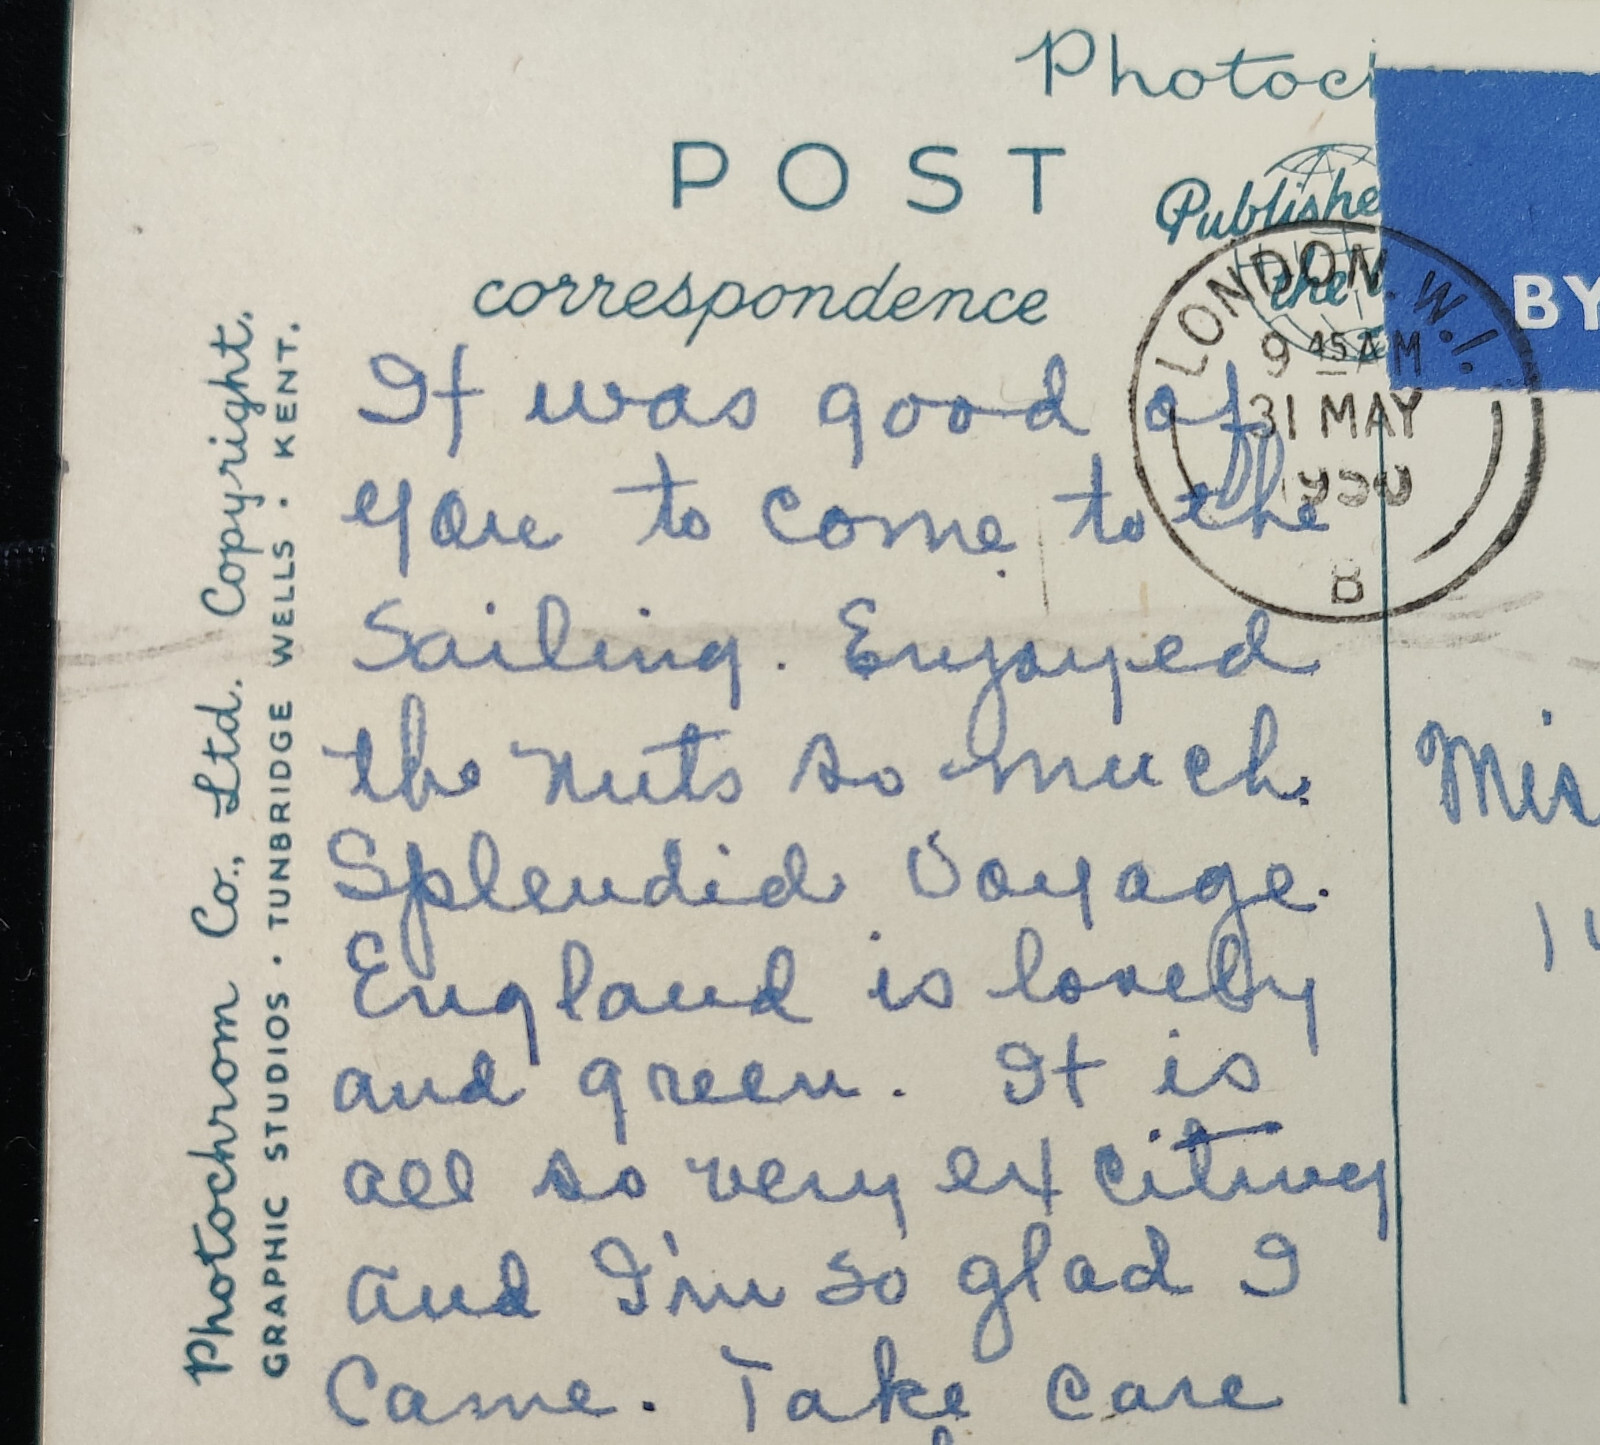 POST
correspondence
LONDON. W.1.
9 15 AM
31 MAY
B
BY
It was good of
you to come to the
Sailing. Enjoyed
the nuts so much.
Splendid Voyage.
England is lovely
and green. It is
all so very exciting
and I'm so glad I
Came. Take care
Photochrom Co., Ltd. Copyright.
GRAPHIC STUDIOS · TUNBRIDGE WELLS · KENT.